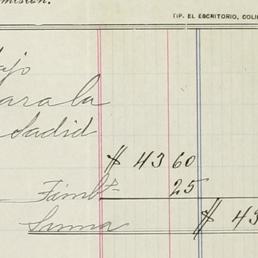 misión.
TIP. EL ESCRITORIO, COLI
ajo
para la
Sadid
$ 43 60
Timb.s 25
Suma $ 43